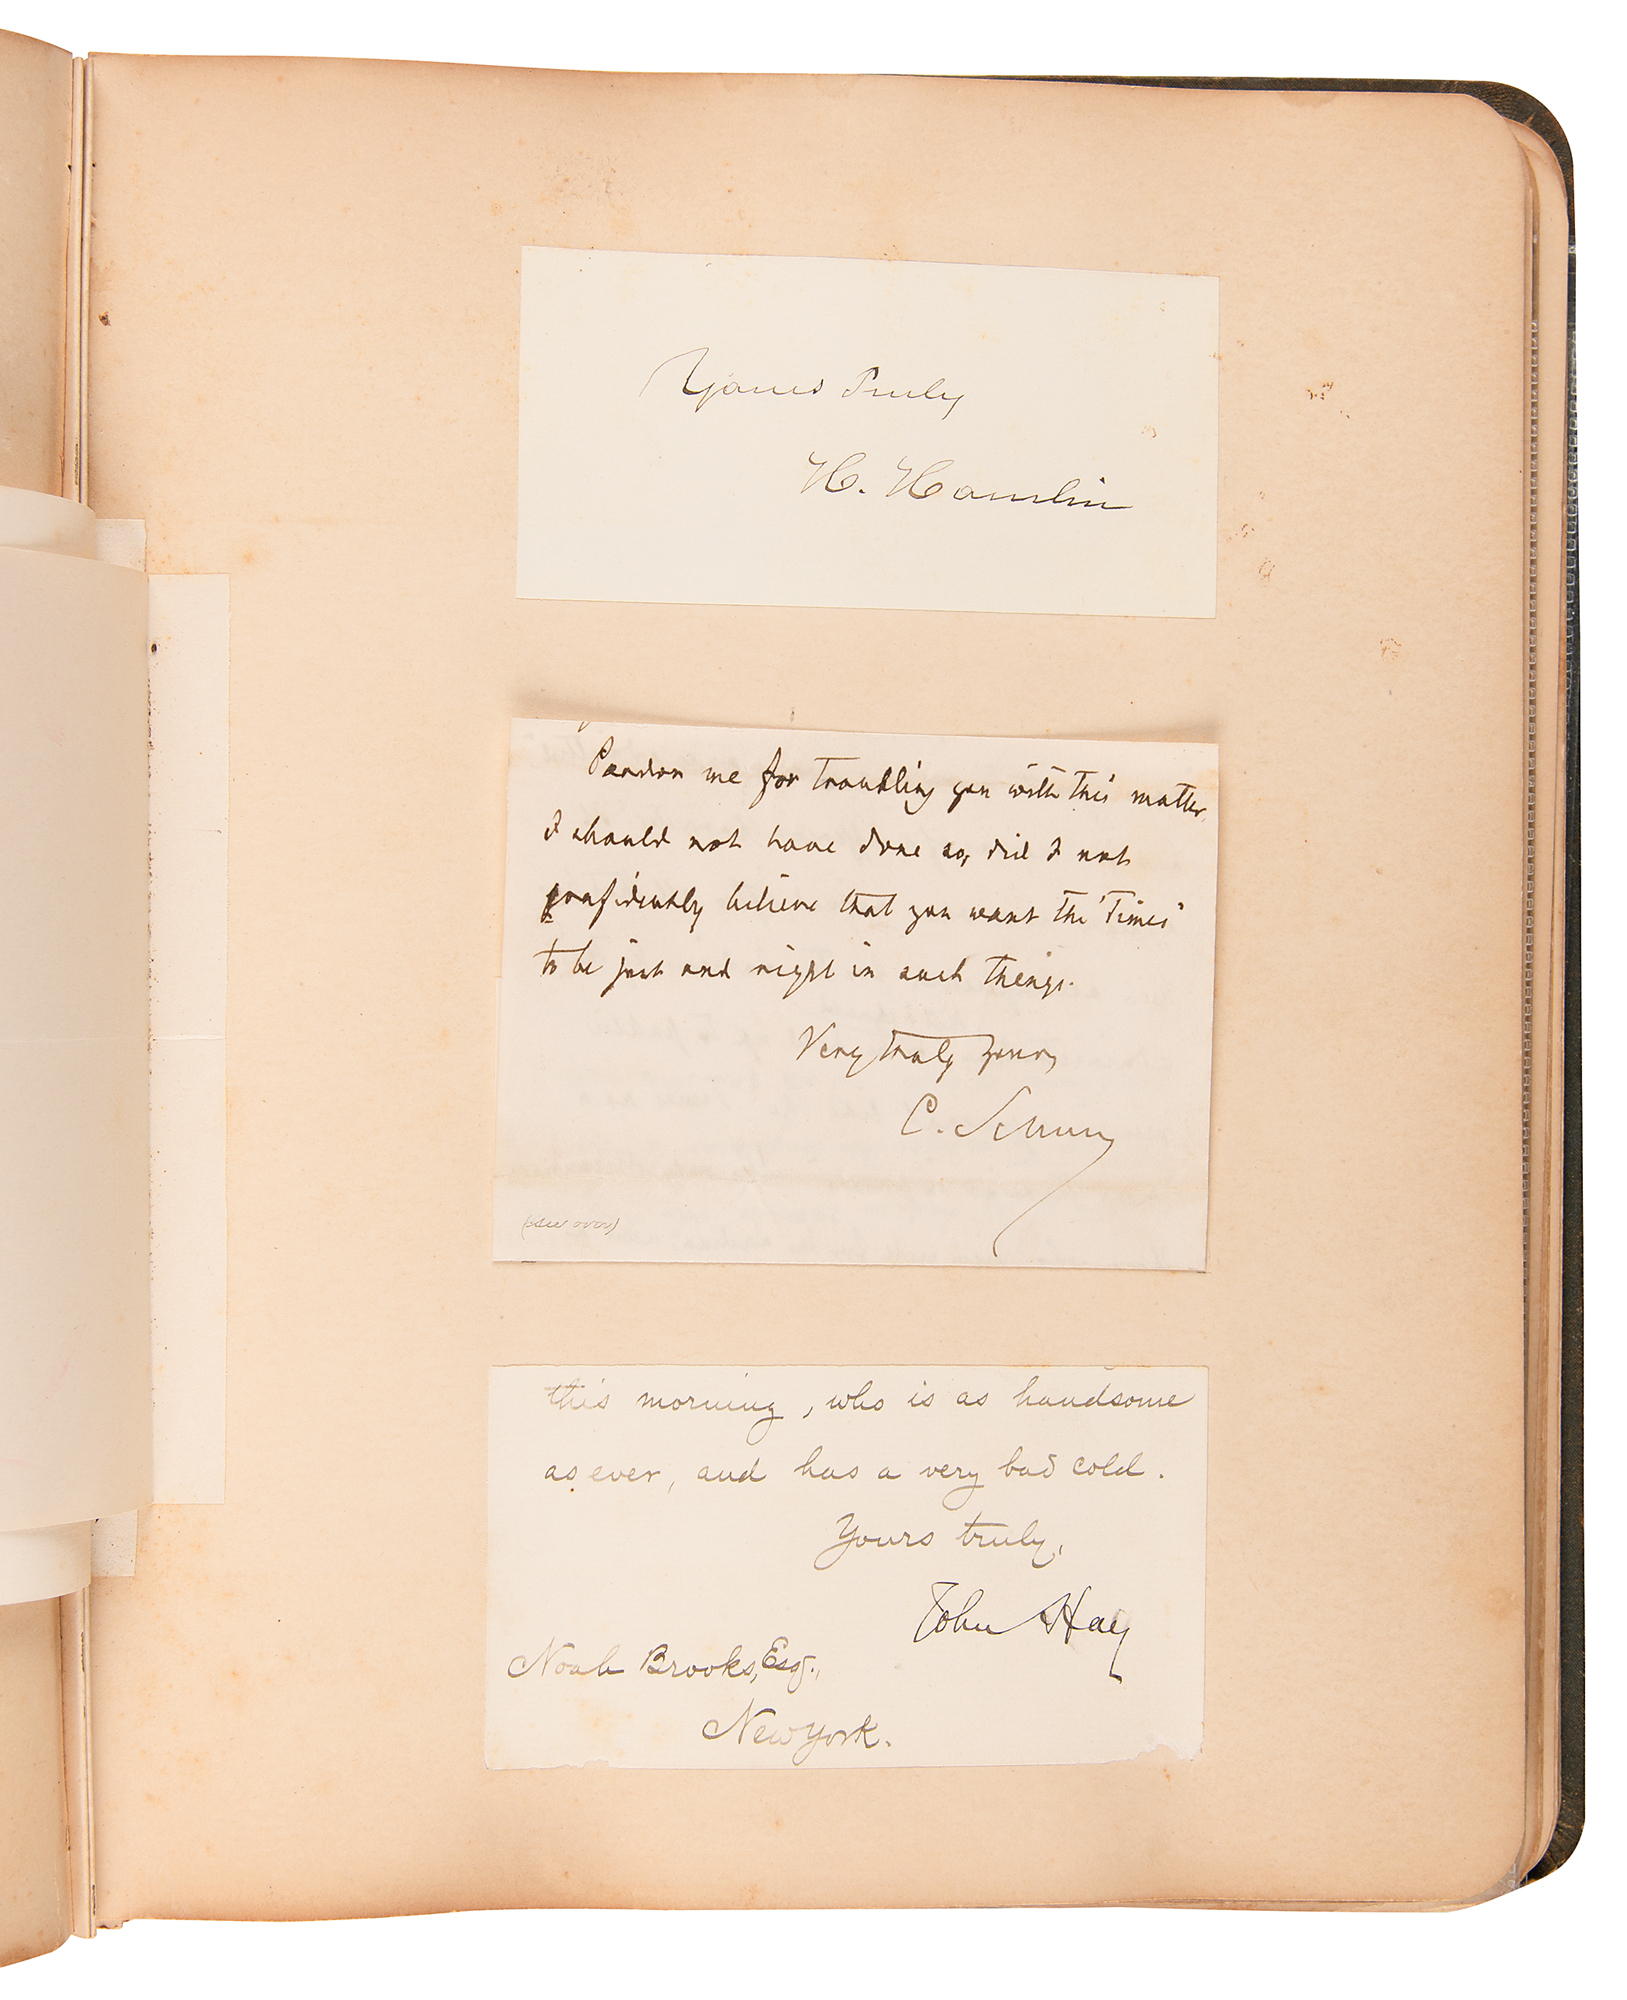 Yours Truly
H. Hamlin
Pardon me for troubling you with this matter.
I should not have done so, did I not
confidently believe that you want the "Times"
to be just and right in such things.
Very truly yours,
C. Schurz
(see over)
this morning, who is as handsome
as ever, and has a very bad cold.
Yours truly,
John Hay
Noah Brooks, Esq.,
New York.